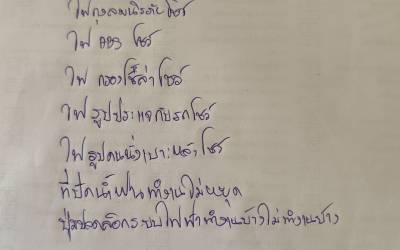 ไฟถุงลมนิรภัยโชว์
ไฟ ABS โชว์
ไฟ กรองโซล่าโชว์
ไฟ รูปประแจกับรถโชว์
ไฟ รูปคนนั่งเบาะหลังโชว์
ที่ปัดน้ำฝนทำงานไม่หยุด
ปุ่มปลดล็อกระบบไฟฟ้าทำงานบ้างไม่ทำงานบ้าง